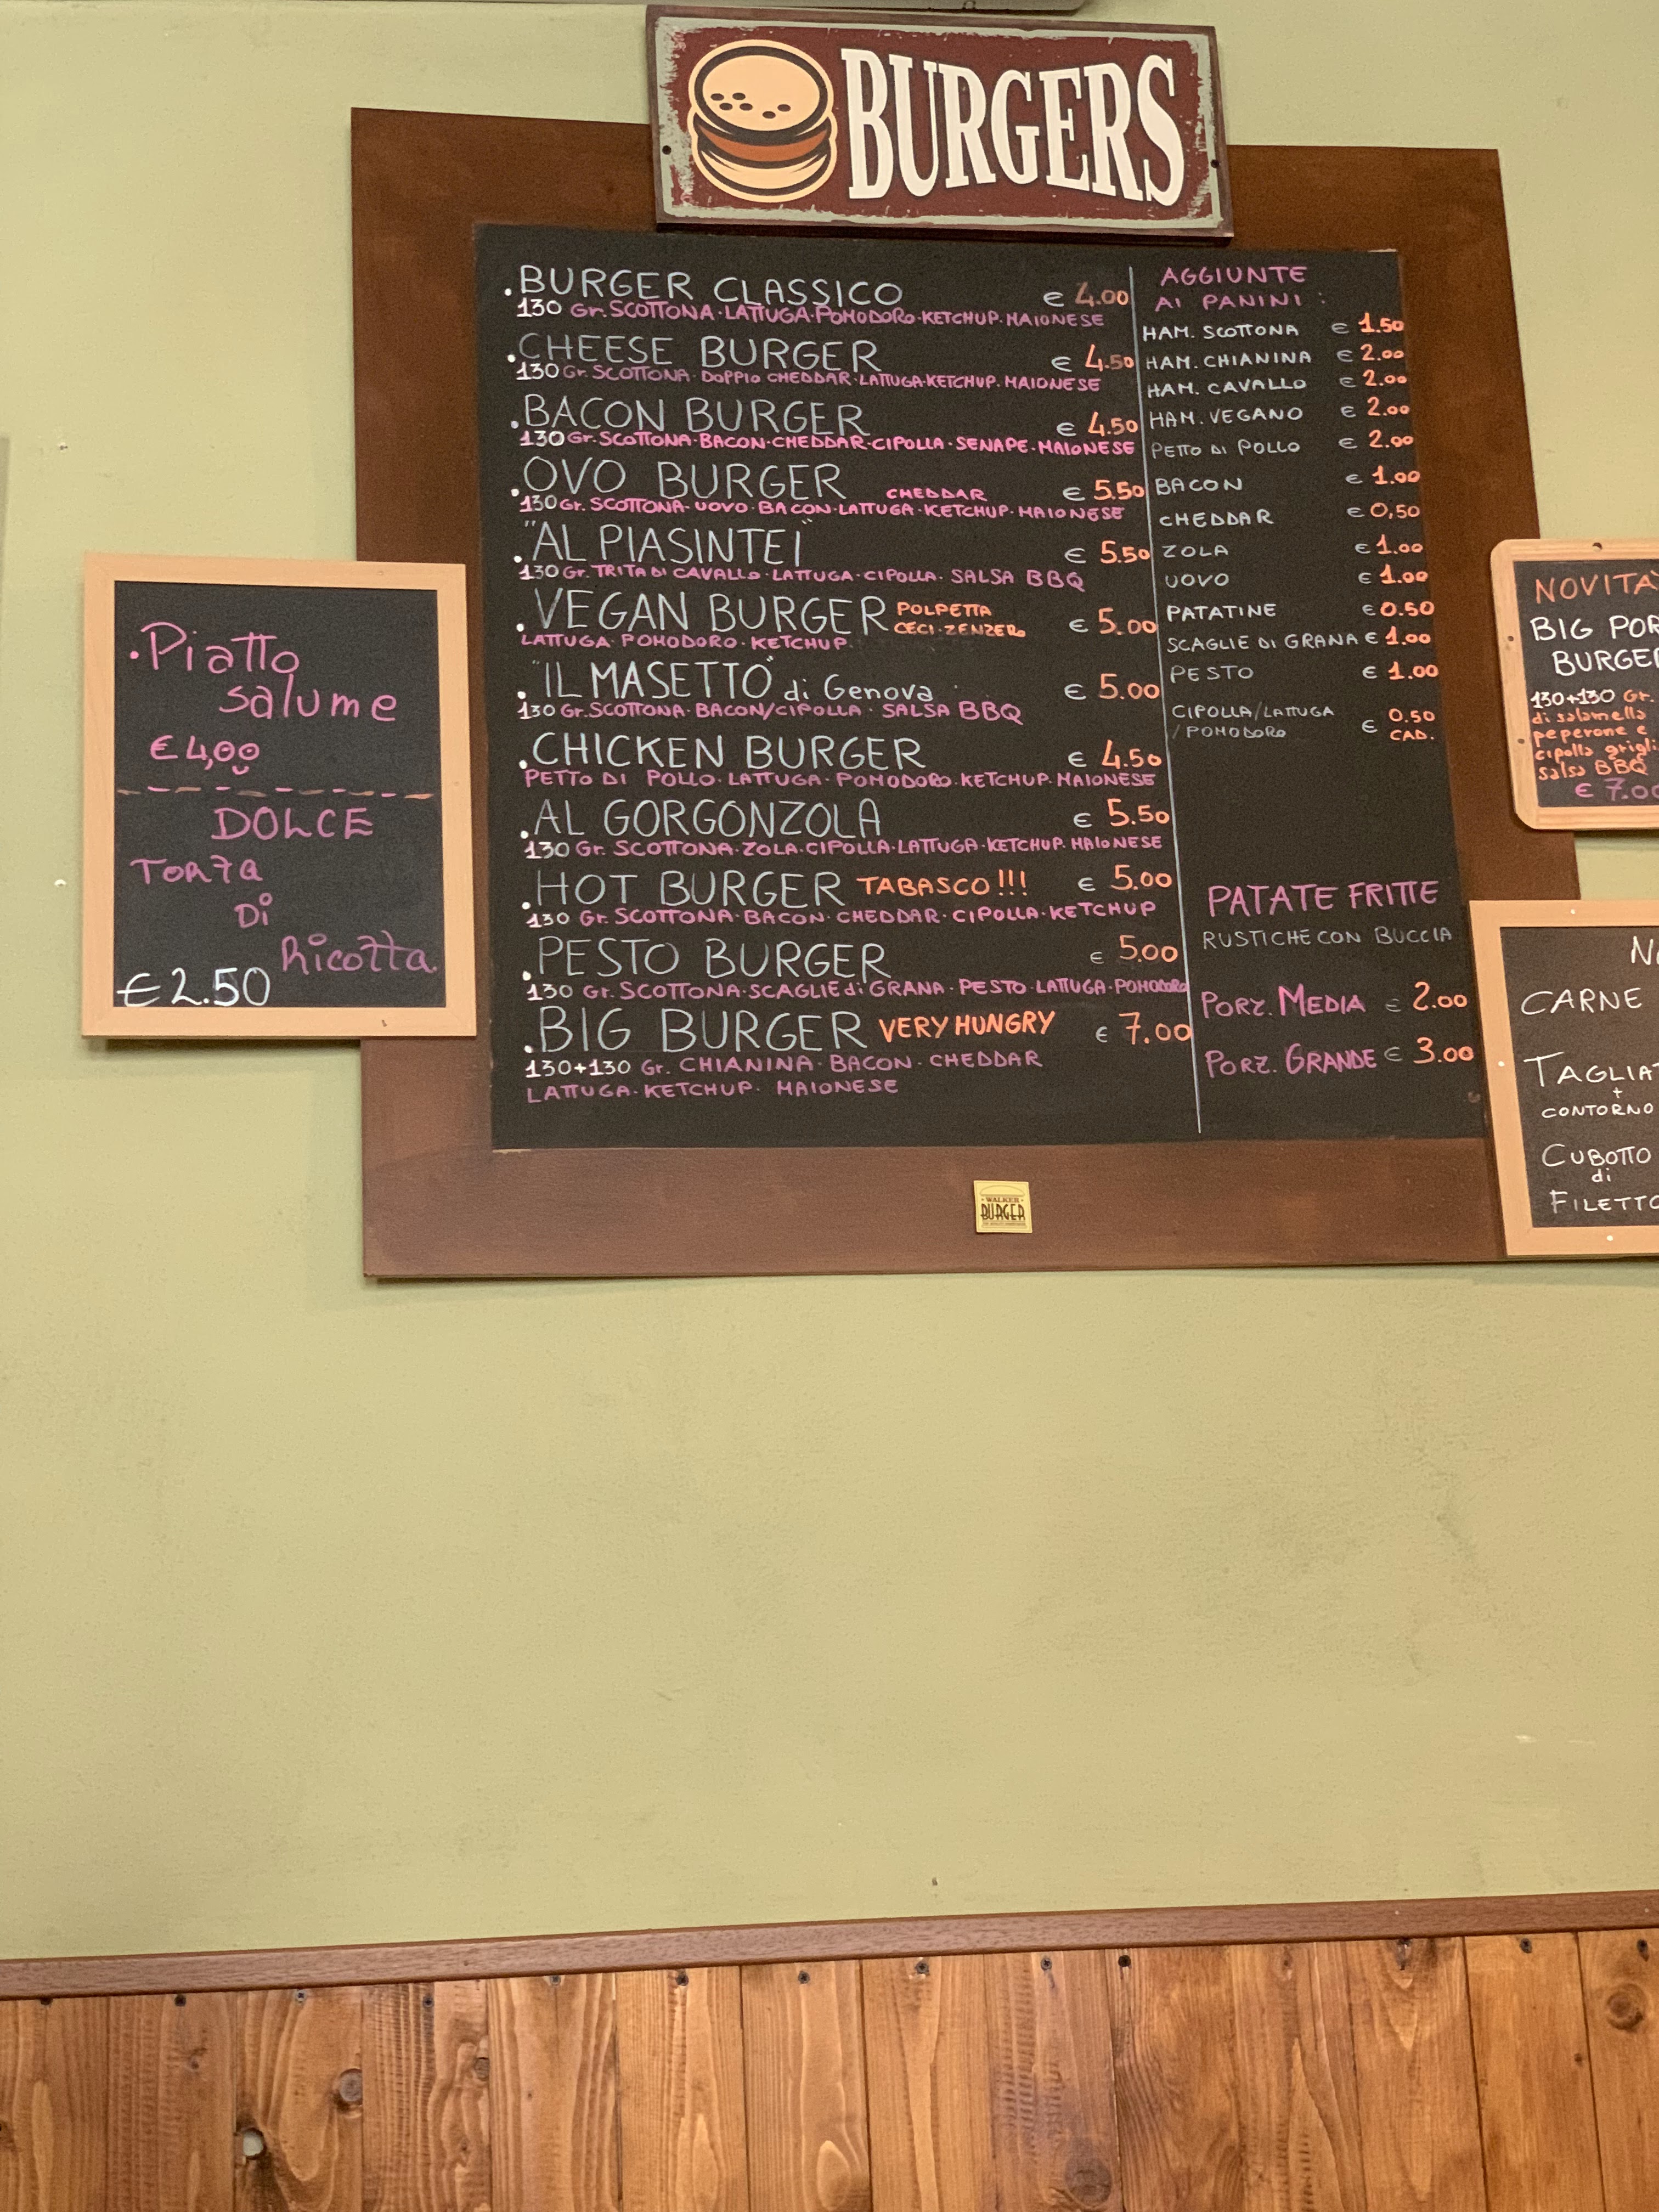 BURGERS
.BURGER CLASSICO € 4.00
130 Gr. SCOTTONA·LATTUGA·POMODORO·KETCHUP·MAIONESE
.CHEESE BURGER € 4.50
130 Gr. SCOTTONA·DOPPIO CHEDDAR·LATTUGA·KETCHUP·MAIONESE
.BACON BURGER € 4.50
130 Gr. SCOTTONA·BACON·CHEDDAR·CIPOLLA·SENAPE·MAIONESE
.OVO BURGER CHEDDAR € 5.50
130 Gr. SCOTTONA·UOVO·BACON·LATTUGA·KETCHUP·MAIONESE
."AL PIASINTEI" € 5.50
130 Gr. TRITA DI CAVALLO·LATTUGA·CIPOLLA·SALSA BBQ
.VEGAN BURGER POLPETTA CECI·ZENZERO € 5.00
LATTUGA·POMODORO·KETCHUP
."IL MASETTO" di Genova € 5.00
130 Gr. SCOTTONA·BACON/CIPOLLA·SALSA BBQ
.CHICKEN BURGER € 4.50
PETTO DI POLLO·LATTUGA·POMODORO·KETCHUP·MAIONESE
.AL GORGONZOLA € 5.50
130 Gr. SCOTTONA·ZOLA·CIPOLLA·LATTUGA·KETCHUP·MAIONESE
.HOT BURGER TABASCO!!! € 5.00
130 Gr. SCOTTONA·BACON·CHEDDAR·CIPOLLA·KETCHUP
.PESTO BURGER € 5.00
130 Gr. SCOTTONA·SCAGLIE di GRANA·PESTO·LATTUGA·POMODORO
.BIG BURGER VERY HUNGRY € 7.00
130+130 Gr. CHIANINA·BACON·CHEDDAR
LATTUGA·KETCHUP·MAIONESE
AGGIUNTE
AI PANINI:
HAM. SCOTTONA € 1.50
HAM. CHIANINA € 2.00
HAM. CAVALLO € 2.00
HAM. VEGANO € 2.00
PETTO DI POLLO € 2.00
BACON € 1.00
CHEDDAR € 0,50
ZOLA € 1.00
UOVO € 1.00
PATATINE € 0.50
SCAGLIE DI GRANA € 1.00
PESTO € 1.00
CIPOLLA/LATTUGA
/POMODORO € 0.50 CAD.
PATATE FRITTE
RUSTICHE CON BUCCIA
PORZ. MEDIA € 2.00
PORZ. GRANDE € 3.00
WALKER
BURGER
.Piatto
salume
€ 4,00
DOLCE
TORTA
Di
Ricotta
€ 2.50
NOVITA'
BIG POR
BURGER
130+130 Gr.
di salamella
peperone e
cipolla grigli
salsa BBQ
€ 7.00
CARNE
TAGLIAT
+
CONTORNO
CUBOTTO
di
FILETTO